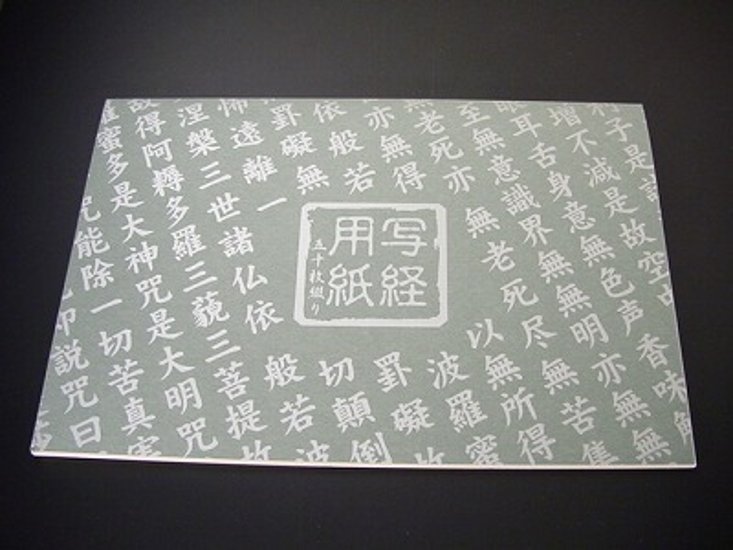 子是諸
増不減是故空中
眼耳舌身意無色声香味
至無意識界無無明亦無無
無老死亦無老死尽無苦集
亦無得以無所得
依般若波羅蜜
罣礙無罣礙故
怖遠離一切顛倒
涅槃三世諸仏依般若波
故得阿耨多羅三藐三菩提故
蜜多是大神咒是大明咒
咒能除一切苦真実
即説咒曰
写経
用紙
五十枚綴り